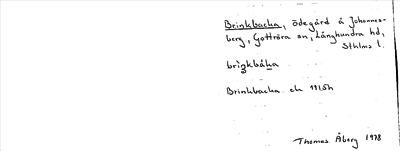 Brinkbacka, ödegård å Johannes-
berg, Gottröra sn, Långhundra hd,
Sthlms l.
briŋkbáka
Brinkbacka ek
Thomas Åberg 1978